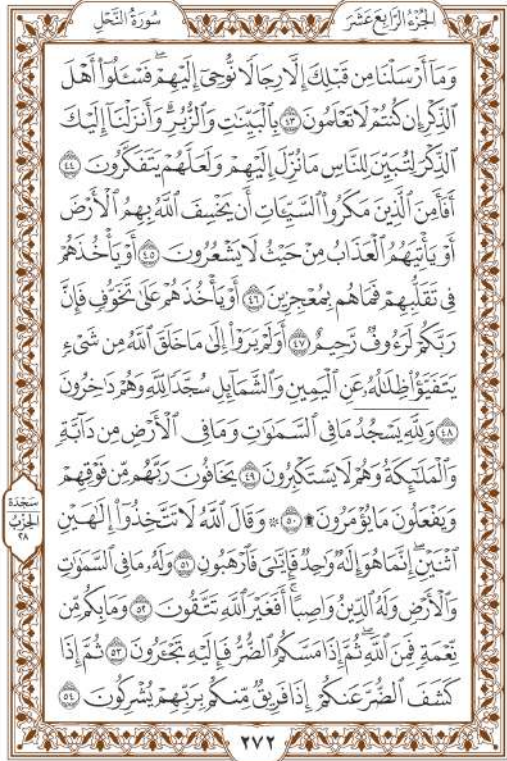 سُورَةُ النَّحۡلِ
الجُزْءُ الرَّابِعَ عَشَرَ
وَمَآ أَرۡسَلۡنَا مِن قَبۡلِكَ إِلَّا رِجَالٗا نُّوحِيٓ إِلَيۡهِمۡۖ فَسۡـَٔلُوٓاْ أَهۡلَ
ٱلذِّكۡرِ إِن كُنتُمۡ لَا تَعۡلَمُونَ ٤٣ بِٱلۡبَيِّنَٰتِ وَٱلزُّبُرِۗ وَأَنزَلۡنَآ إِلَيۡكَ
ٱلذِّكۡرَ لِتُبَيِّنَ لِلنَّاسِ مَا نُزِّلَ إِلَيۡهِمۡ وَلَعَلَّهُمۡ يَتَفَكَّرُونَ ٤٤
أَفَأَمِنَ ٱلَّذِينَ مَكَرُواْ ٱلسَّيِّـَٔاتِ أَن يَخۡسِفَ ٱللَّهُ بِهِمُ ٱلۡأَرۡضَ
أَوۡ يَأۡتِيَهُمُ ٱلۡعَذَابُ مِنۡ حَيۡثُ لَا يَشۡعُرُونَ ٤٥ أَوۡ يَأۡخُذَهُمۡ
فِي تَقَلُّبِهِمۡ فَمَا هُم بِمُعۡجِزِينَ ٤٦ أَوۡ يَأۡخُذَهُمۡ عَلَىٰ تَخَوُّفٖ فَإِنَّ
رَبَّكُمۡ لَرَءُوفٞ رَّحِيمٌ ٤٧ أَوَلَمۡ يَرَوۡاْ إِلَىٰ مَا خَلَقَ ٱللَّهُ مِن شَيۡءٖ
يَتَفَيَّؤُاْ ظِلَٰلُهُۥ عَنِ ٱلۡيَمِينِ وَٱلشَّمَآئِلِ سُجَّدٗا لِّلَّهِ وَهُمۡ دَٰخِرُونَ
٤٨ وَلِلَّهِۤ يَسۡجُدُۤ مَا فِي ٱلسَّمَٰوَٰتِ وَمَا فِي ٱلۡأَرۡضِ مِن دَآبَّةٖ
وَٱلۡمَلَٰٓئِكَةُ وَهُمۡ لَا يَسۡتَكۡبِرُونَ ٤٩ يَخَافُونَ رَبَّهُم مِّن فَوۡقِهِمۡ
وَيَفۡعَلُونَ مَا يُؤۡمَرُونَ۩ ٥٠ ۞ وَقَالَ ٱللَّهُ لَا تَتَّخِذُوٓاْ إِلَٰهَيۡنِ
ٱثۡنَيۡنِۖ إِنَّمَا هُوَ إِلَٰهٞ وَٰحِدٞ فَإِيَّٰيَ فَٱرۡهَبُونِ ٥١ وَلَهُۥ مَا فِي ٱلسَّمَٰوَٰتِ
وَٱلۡأَرۡضِ وَلَهُ ٱلدِّينُ وَاصِبًاۚ أَفَغَيۡرَ ٱللَّهِ تَتَّقُونَ ٥٢ وَمَا بِكُم مِّن
نِّعۡمَةٖ فَمِنَ ٱللَّهِۖ ثُمَّ إِذَا مَسَّكُمُ ٱلضُّرُّ فَإِلَيۡهِ تَجۡـَٔرُونَ ٥٣ ثُمَّ إِذَا
كَشَفَ ٱلضُّرَّ عَنكُمۡ إِذَا فَرِيقٞ مِّنكُم بِرَبِّهِمۡ يُشۡرِكُونَ ٥٤
سَجْدَة
الحِزْبُ
٢٨
٢٧٢